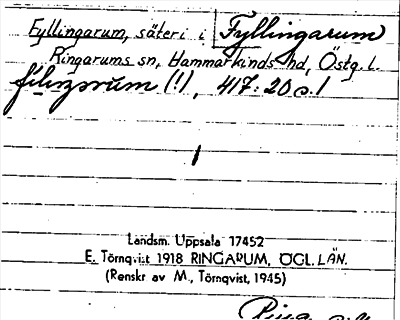 Fyllingarum, säteri i Fyllingarum
Ringarums sn, Hammarkinds hd, Östg. l.
(!), 417:20 s. 1
Landsm. Uppsala 17452
E. Törnqvist 1918 RINGARUM, ÖGL. LÄN.
(Renskr av M. Törnqvist, 1945)